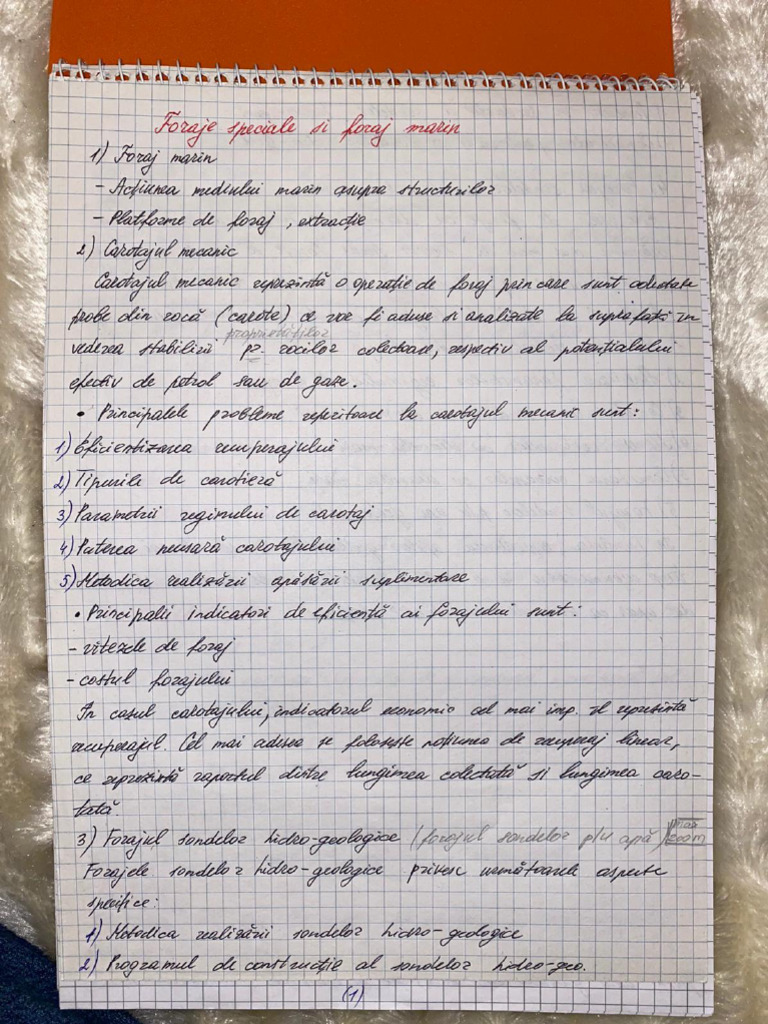 Foraje speciale si foraj marin
1) Foraj marin
- Acțiunea mediului marin asupra structurilor
- Platforme de foraj, extracție
2) Carotajul mecanic
Carotajul mecanic reprezintă o operație de foraj prin care sunt colectate
probe din rocă (carote) ce vor fi aduse si analizate la suprafață în
proprietăților
vederea stabilirii pr. rocilor colectoare, respectiv al potențialului
efectiv de petrol sau de gaze.
• Principalele probleme referitoare la carotajul mecanic sunt:
1) Eficientizarea recuperajului
2) Tipurile de carotieră
3) Parametrii regimului de carotaj
4) Puterea necesară carotajului
5) Metodica realizării apăsării suplimentare
• Principalii indicatori de eficiență ai forajului sunt:
- vitezele de foraj
- costul forajului
În cazul carotajului, indicatorul economic cel mai imp. îl reprezintă
recuperajul. Cel mai adesea se folosește noțiunea de recuperaj liniar,
ce reprezintă raportul dintre lungimea colectată si lungimea caro-
tată.
3) Forajul sondelor hidro-geologice (forajul sondelor ptr apă)
Forajele sondelor hidro-geologice privesc următoarele aspecte
specifice:
1) Metodica realizării sondelor hidro-geologice
2) Programul de construcție al sondelor hidro-geo.
(1)